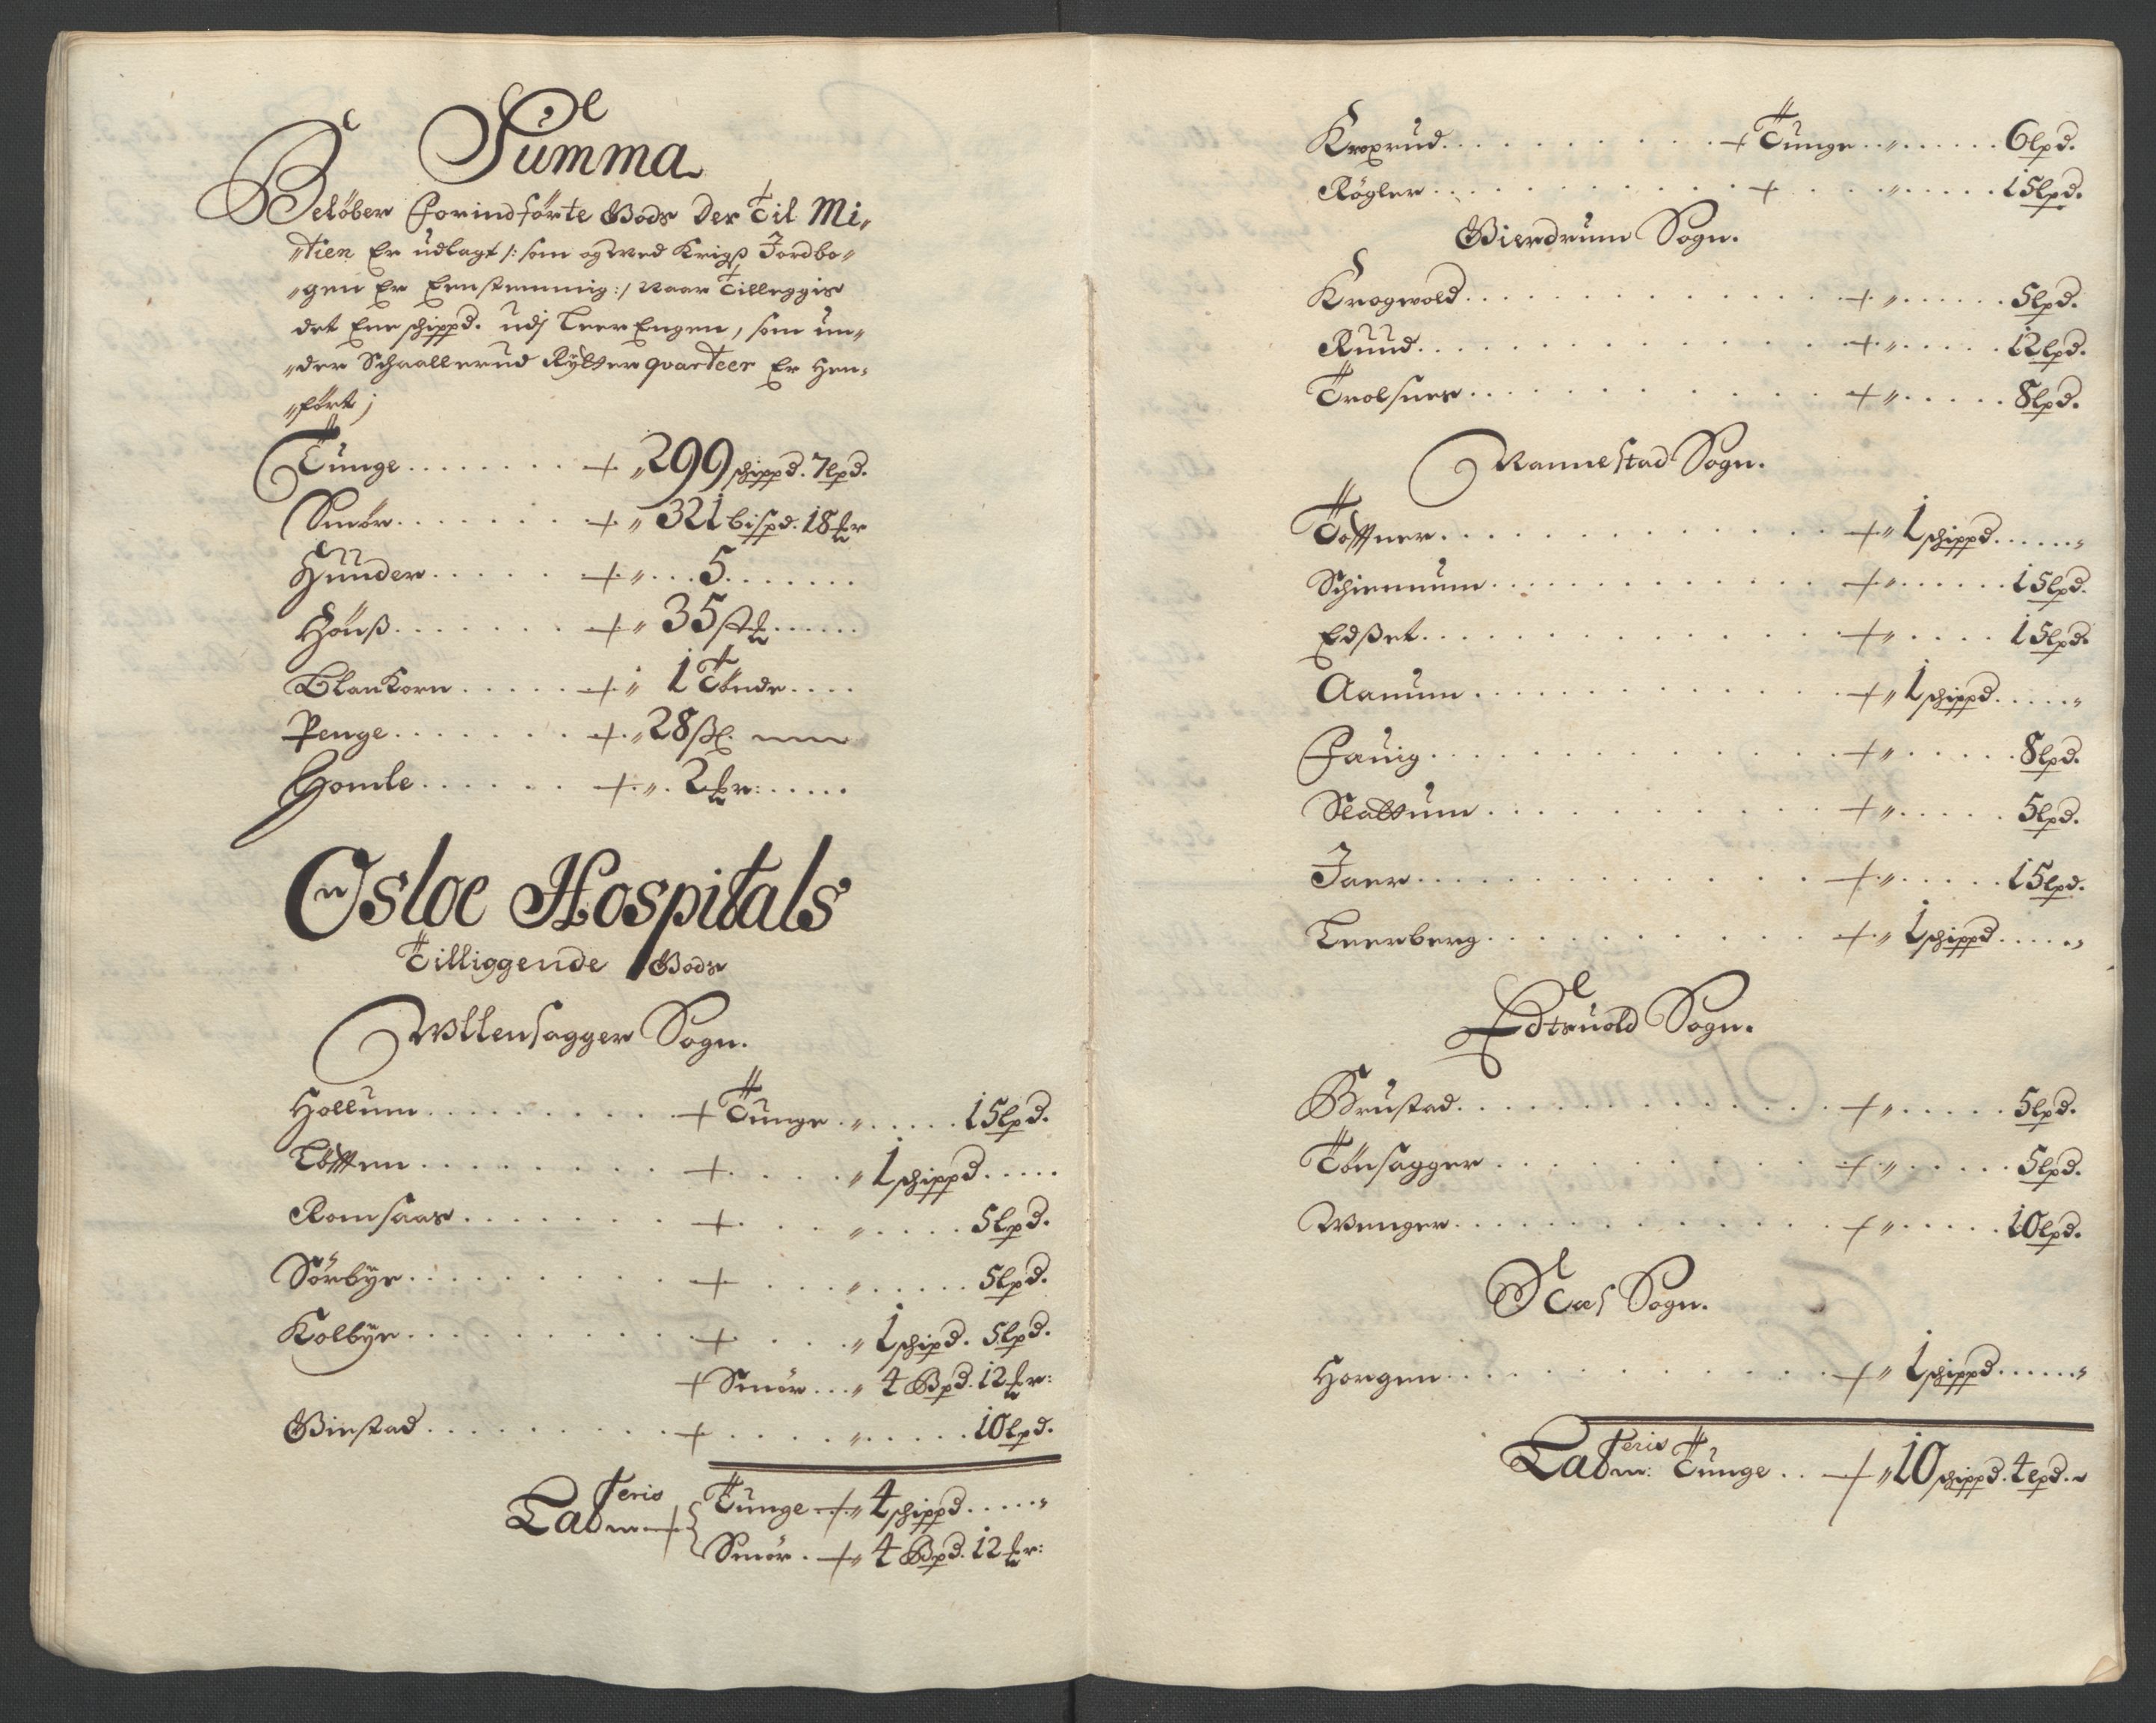 Summa
Belöber Forindförte Gods der til Mi„
„tien Er udlagt /: som og wed Krigß Jordbo„
„gen Er Eenstemmig :/ Naar Tilleggis
det Ene schippd. udj Leer Engen, som un„
„der Schaallerud Rÿtter quarteer Er Hen„
„fört ;
Tunge ........ + „ 299 schippd. 7 lpd.
Smör ....... + „ 321 bispd. 18 mkr
Huuder ..... + „ ... 5 .......
Hönß ....... + „ 35 stk ......
Blankorn ..... + „ 1 Tönde ....
Penge ....... + „ 28 ßl.
Homle ...... + „ . 2 mkr: .....
Osloe Hospitals
Tilliggende Gods
Wllensagger Sogn.
Hollum .......... + Tunge . „ ..... 15 lpd.
Löfften ......... + .... „ 1 schippd .....
Romsaas ....... + ... „ .... 5 lpd.
Sörbÿe ......... + ... „ ..... 5 lpd.
Kolbÿe ......... + ... „ 1 schipd. 5 lpd.
+ Smör ... „ 4 Bpd. 12 mkr:
Gierstad ......... + .... „ ..... 10 lpd.
Lateris { Tunge + „ 4 schippd ..... „
Smör . + „ 4 Bpd. 12 mkr:
Kroxrud .......... + Tunge .. „ ...... 6 lpd.
Rögler .......... + ... „ ..... 15 lpd.
Gierdrum Sogn.
Krogwold ............. + „ ...... 5 lpd.
Ruud .............. + „ ..... 12 lpd.
Trolsnes ............ + „ ..... 8 lpd.
Nannestad Sogn.
Tofftner ............. + „ 1 schippd ...... „
Schiennum ............ + „ ...... 15 lpd.
Edßet .............. + „ .... 15 lpd.
Aanum ............. + „ 1 schippd ..... „
Fauig .............. + „ ...... 8 lpd.
Slattum ............ + „ ..... 5 lpd.
Jaer ............. + „ ..... 15 lpd.
Leerberg .......... + „ 1 schippd ..... „
Edtsuold Sogn.
Brustad ............. + „ ..... 5 lpd.
Tönsagger ........... + „ ..... 5 lpd.
Wenger ............. + „ ..... 10 lpd.
Næs Sogn.
Horgen ............ + „ 1 schippd ...... „
Lateris Tunge .. + „ 10 schippd. 4 lpd. „